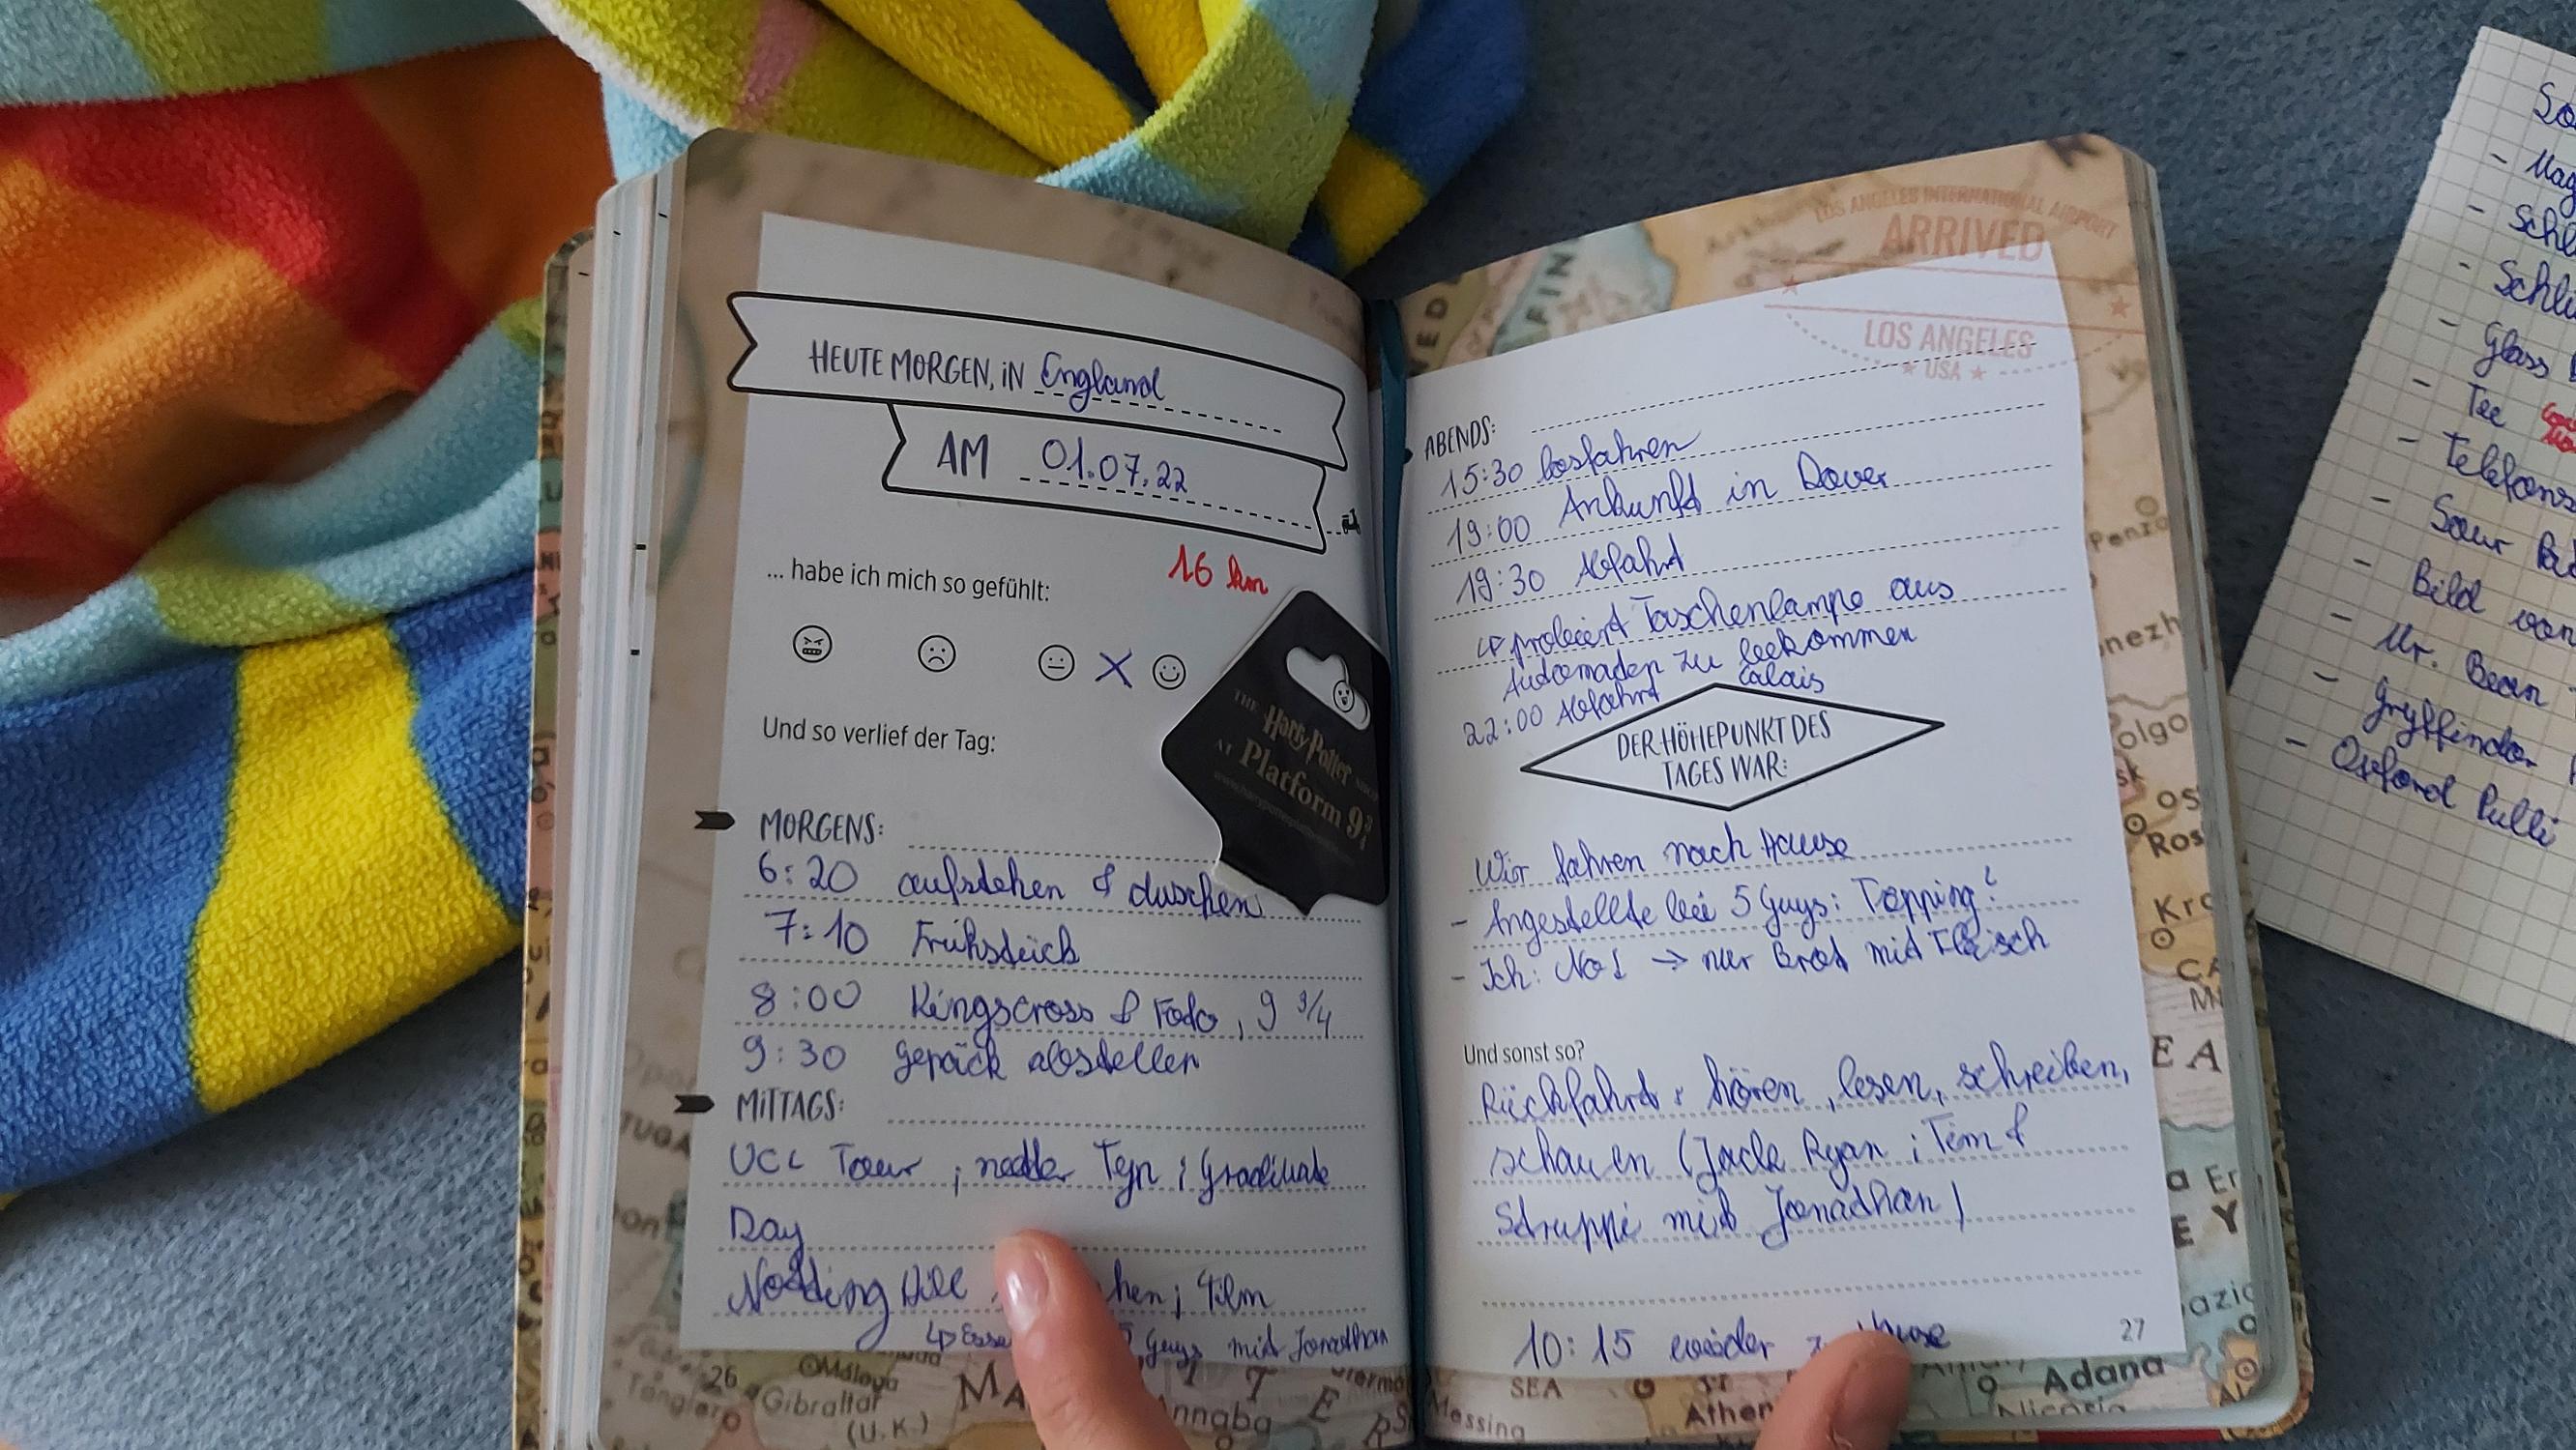 HEUTE MORGEN, iN England
AM 01.07.22
... habe ich mich so gefühlt:
16 km
THE Harry Potter
AT Platform 9 3/4
Und so verlief der Tag:
MORGENS:
6:20 aufstehen & duschen
7:10 Frühstück
8:00 Kingscross & Foto, 9 3/4
9:30 Gepäck abstellen
MiTTAGS:
UCL Tour ; netter Typ ; Graduate
Day
Notting Hill ; Film
↳ Guys mit Jonathan
26
LOS ANGELES INTERNATIONAL AIRPORT
ARRIVED
LOS ANGELES
USA
ABENDS:
15:30 losfahren
19:00 Ankunft in Dover
19:30 Abfahrt
↳ probiert Taschenlampe aus
Automaten zu bekommen
22:00 Abfahrt Calais
DER HÖHEPUNKT DES
TAGES WAR:
Wir fahren nach Hause
- Angestellte bei 5 Guys: Topping?
- Ich: No! → nur Brot mit Fleisch
Und sonst so?
Rückfahrt: hören, lesen, schreiben,
schauen (Jack Ryan ; Tim &
Struppi mit Jonathan)
10:15 wieder
27
FIN
Penza
nezh
Ros
EA
Málaga
Gibraltar
(U.K.)
Annaba
Messing
SEA
Athen
Adana
Nicosia
- Glass
- Tee
- Telefons
- Sour
- Bild von
- Mr. Bean
- Gryffindor
- Oxford Pulli